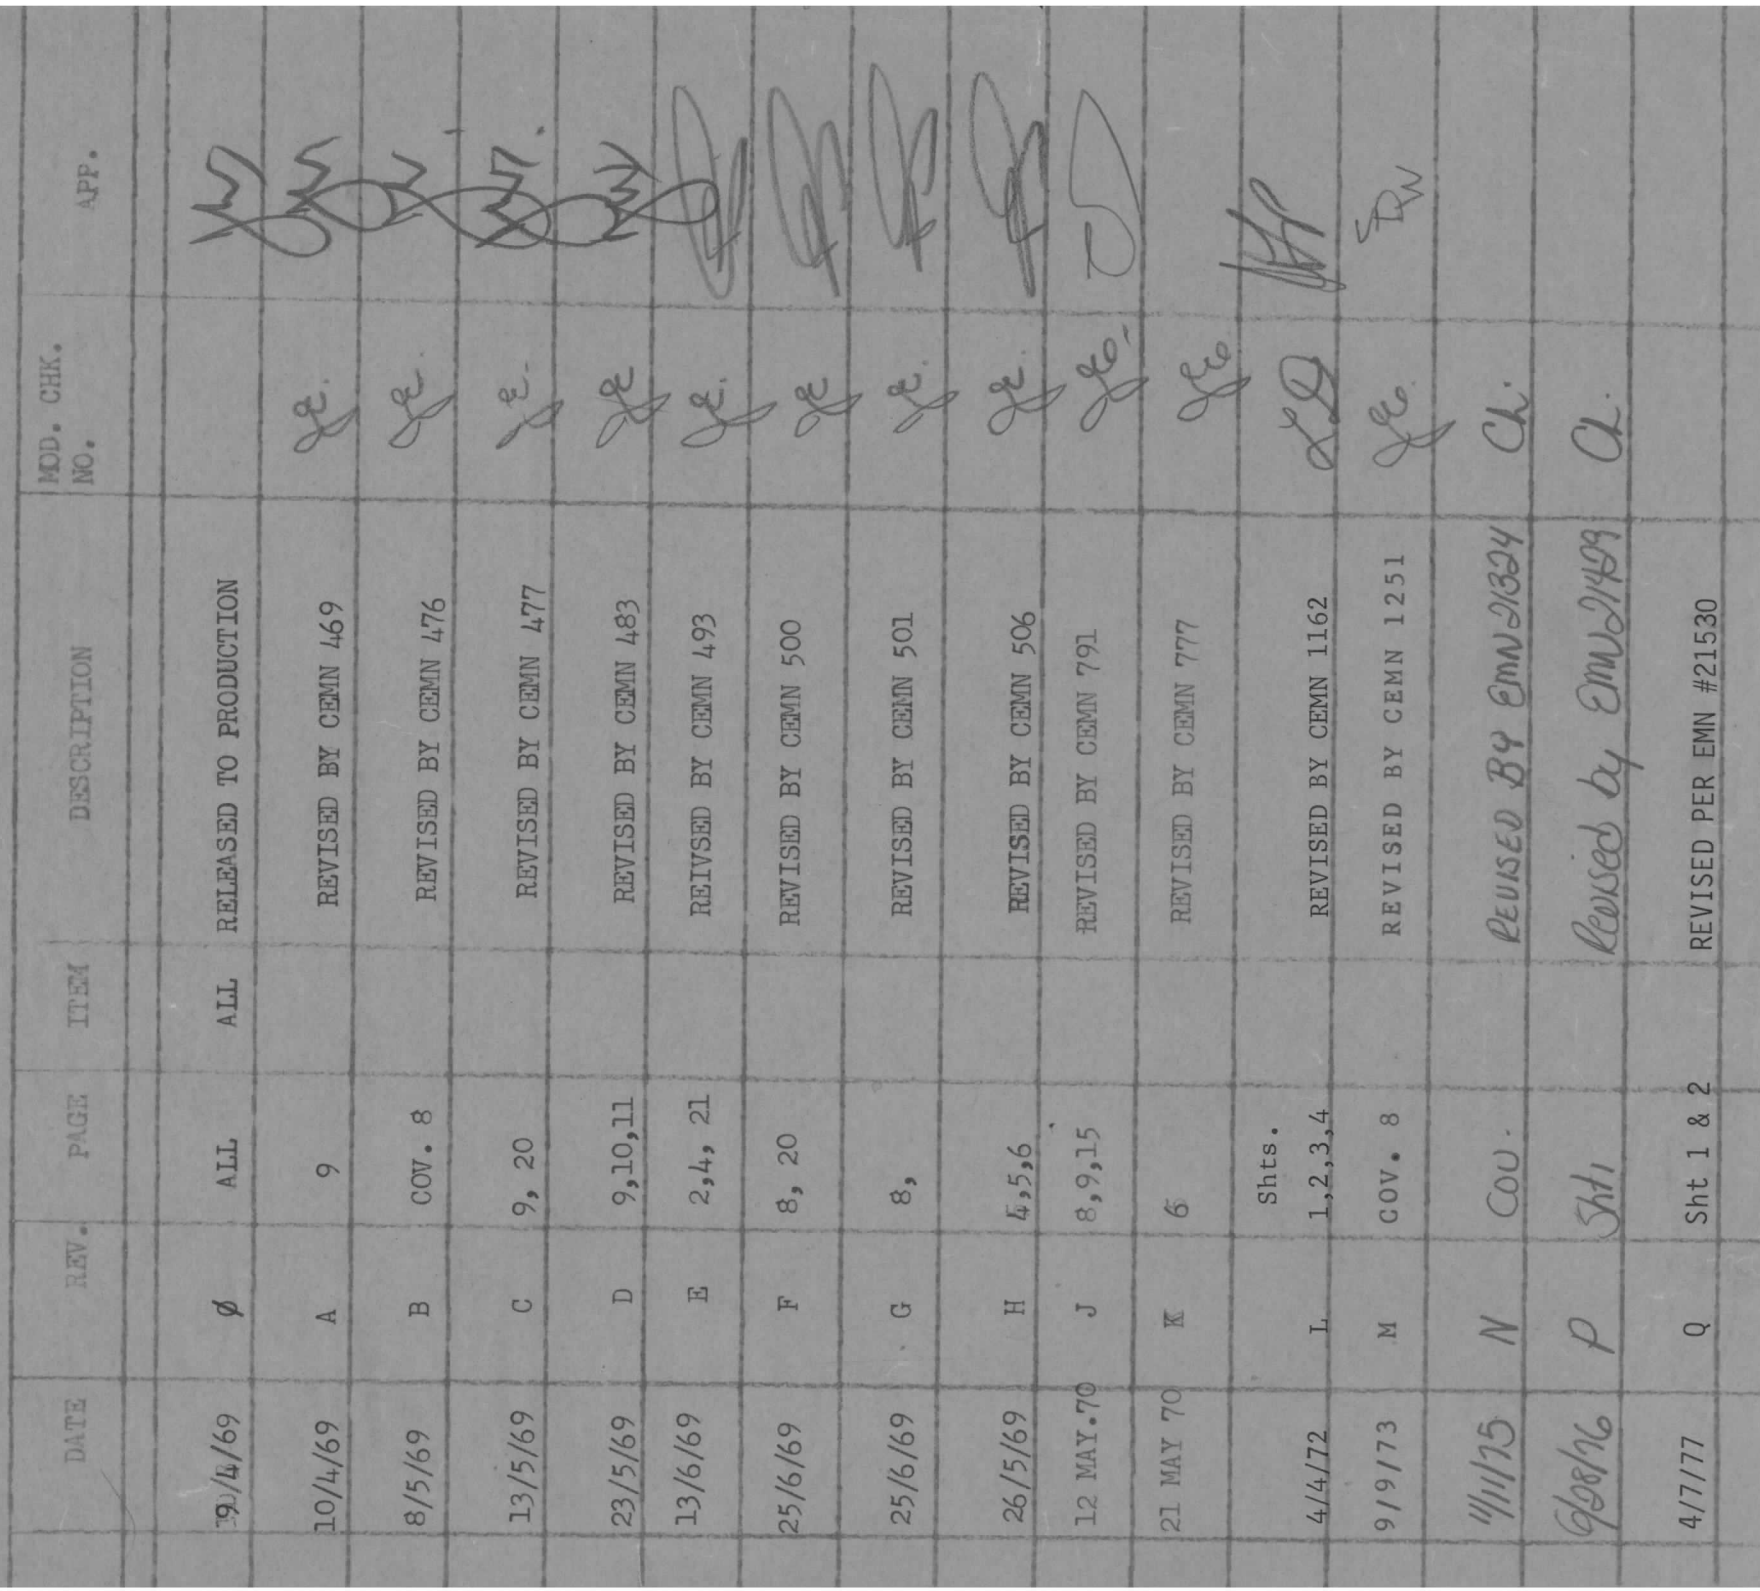 DATE REV. PAGE ITEM DESCRIPTION MOD. CHK. APP.
NO.
/4/69 Ø ALL ALL RELEASED TO PRODUCTION
10/4/69 A 9 REVISED BY CEMN 469
8/5/69 B COV. 8 REVISED BY CEMN 476
13/5/69 C 9, 20 REVISED BY CEMN 477
23/5/69 D 9,10,11 REVISED BY CEMN 483
13/6/69 E 2,4, 21 REIVSED BY CEMN 493
25/6/69 F 8, 20 REVISED BY CEMN 500
25/6/69 G 8, REVISED BY CEMN 501
26/5/69 H 4,5,6 REVISED BY CEMN 506
12 MAY.70 J 8,9,15 REVISED BY CEMN 791
21 MAY 70 K 6 REVISED BY CEMN 777
Shts.
4/4/72 L 1,2,3,4 REVISED BY CEMN 1162
9/9/73 M COV. 8 REVISED BY CEMN 1251
11/11/75 N COV. REVISED BY EMN 21324 Ch.
6/28/76 P Sht 1 Revised by EMN 21429 Ch.
4/7/77 Q Sht 1 & 2 REVISED PER EMN #21530